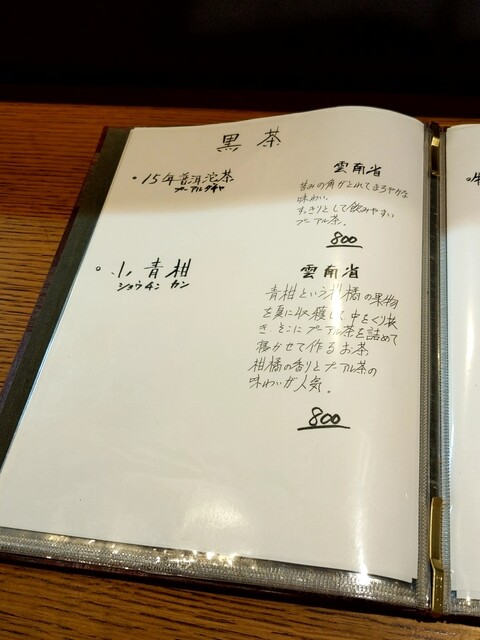 黒茶
・15年普洱沱茶
プーアルダチャ
雲南省
苦みの角がとれてまろやかな
味わい。
すっきりとして飲みやすい
プーアル茶。
800
・小青柑
ショウチン カン
雲南省
青柑という柑橘の果物
を夏に収穫し 中をくり抜
き そこに プーアル茶を詰めて
寝かせて作るお茶
柑橘の香りとプーアル茶の
味わいが人気。
800